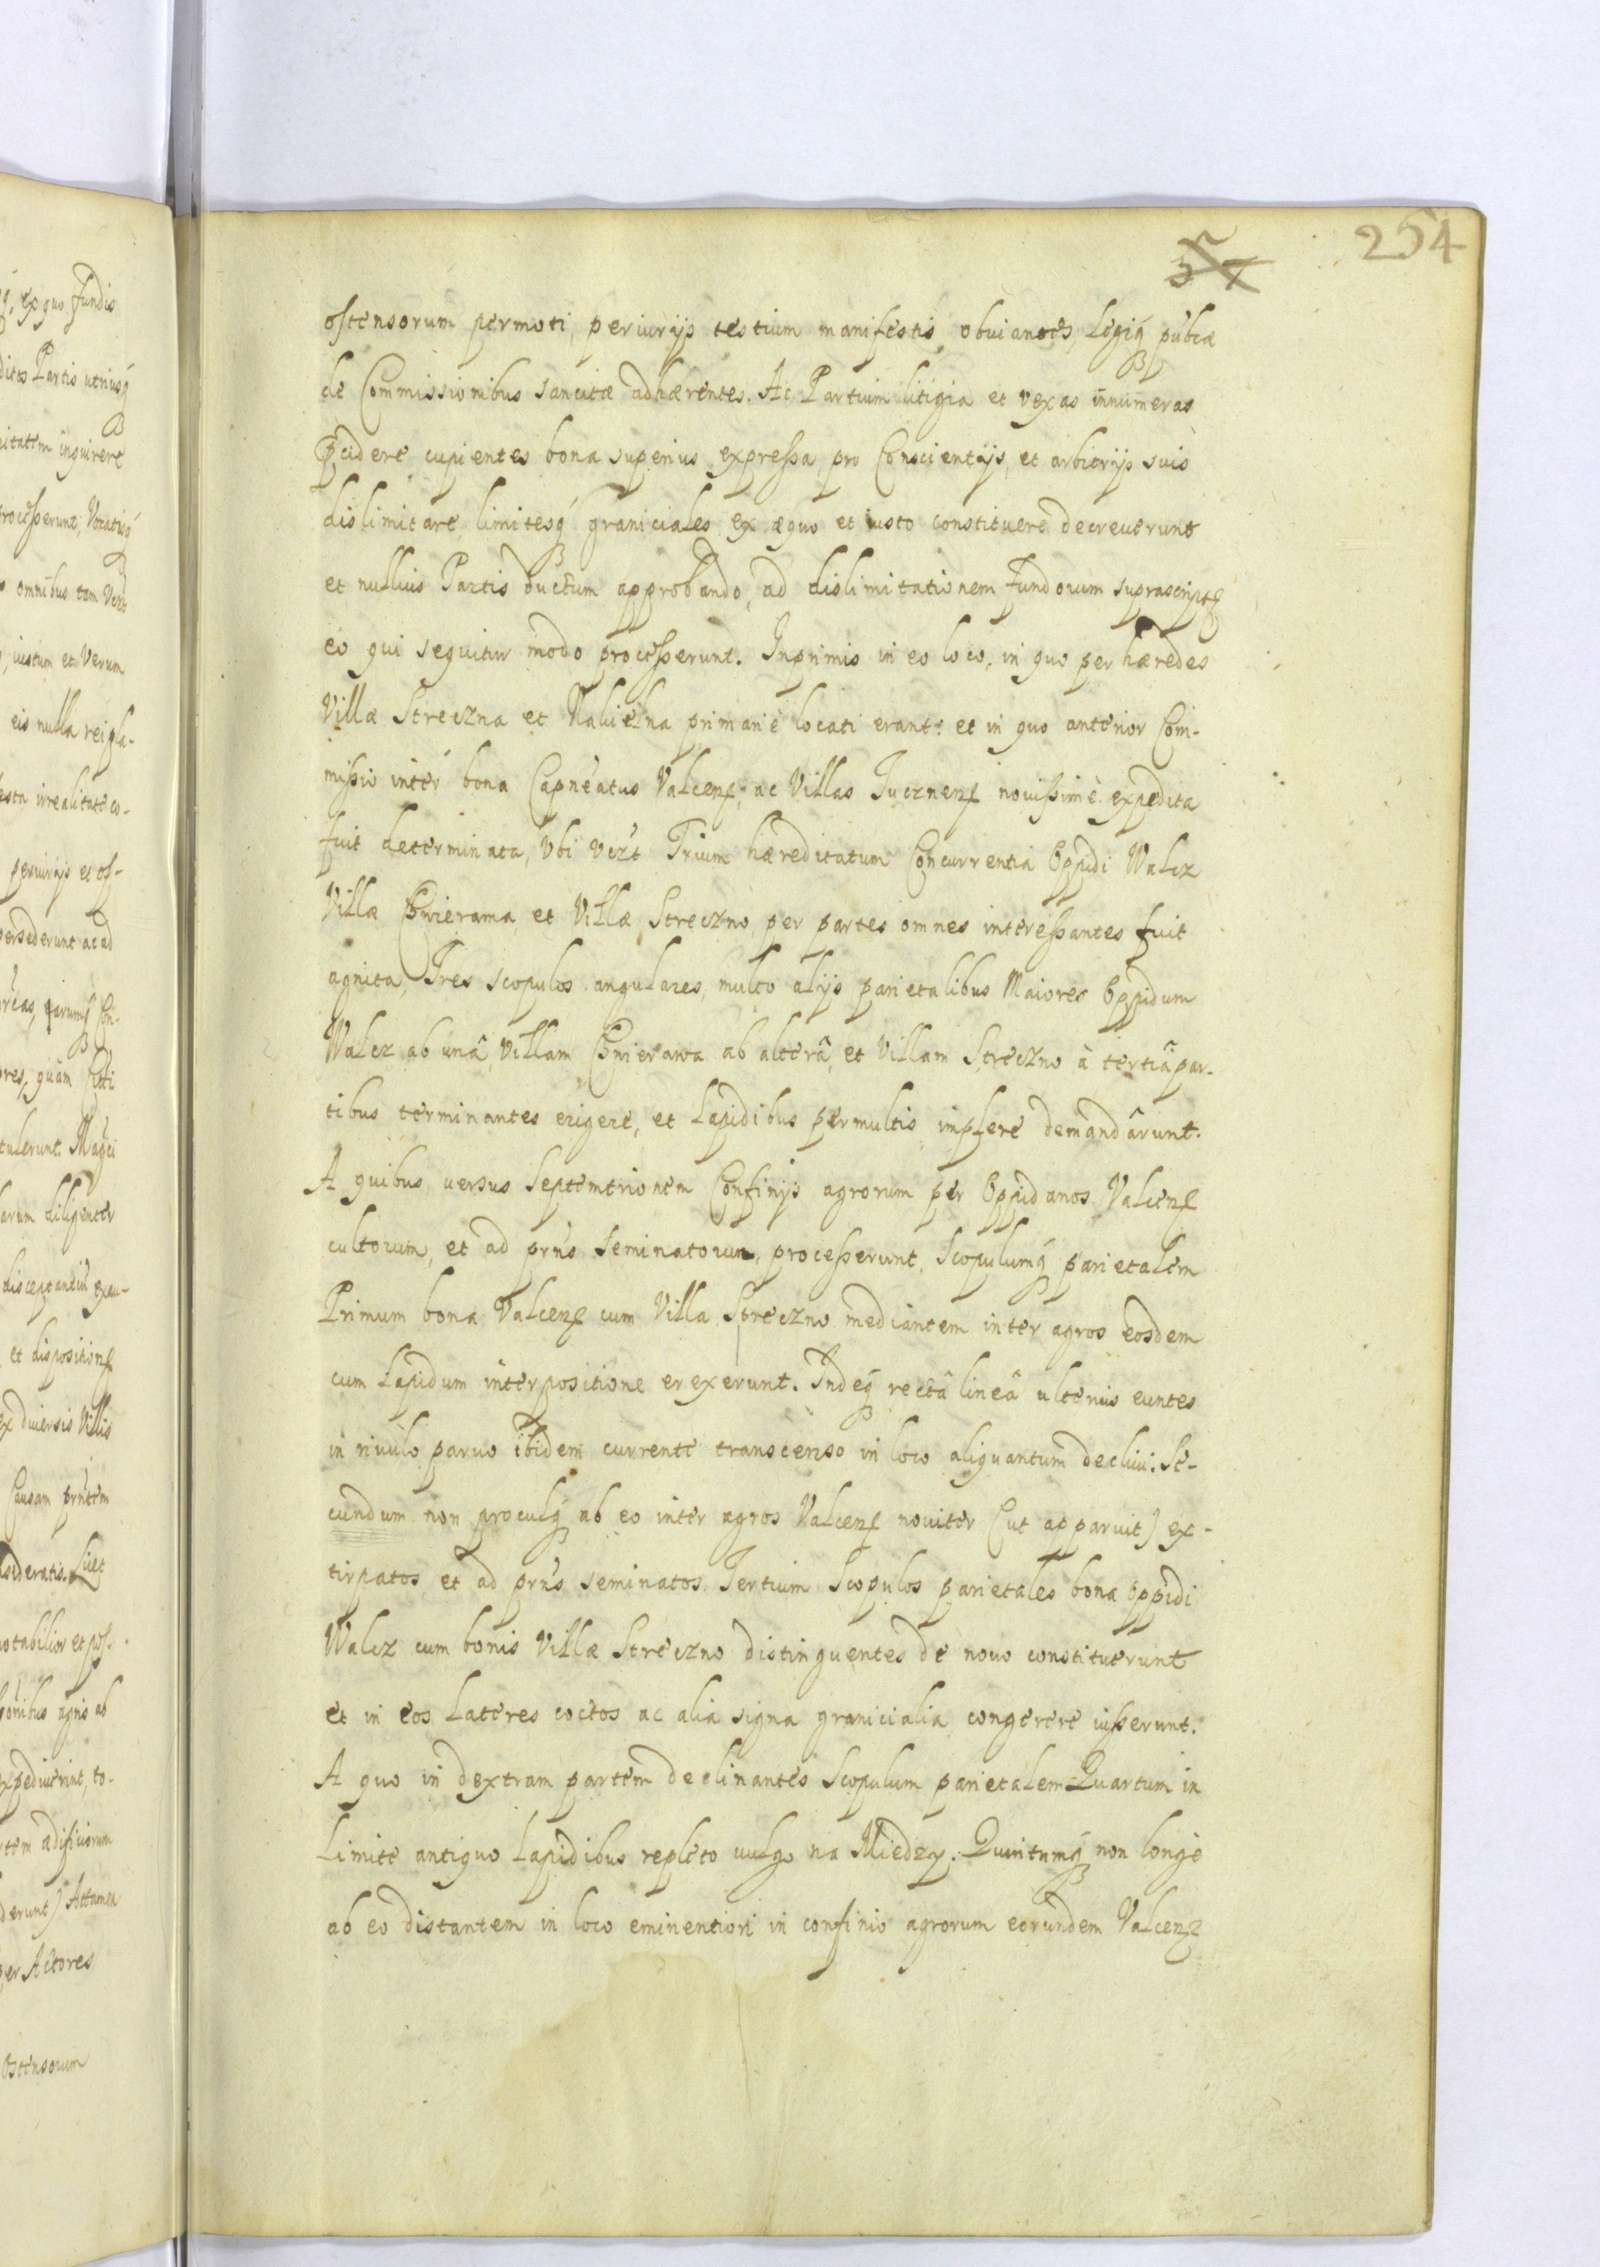 254
ostensorum permoti, periurijs testium manifestis obuiantes, Legiq́ₓ públcæ
de Commissionibus sancitæ adhærentes. Ac Partium litigia et vexas innumeras
cupientes bona superius expressa pro Conscientijs et arbitrijs suis
dislimitare, limitesq́ₓ graniciales ex æquo et iusto constituere decreuerunt
et nullius Partis ductum approbando, ad dislimitationem fundorum
eo qui sequitur modo processerunt. Inprimis in eo loco, in quo per hæredes
Villæ Streczna et primarie locati erant: et in quo anterior Com-
missio inter bona Capneatus Valcenꝭ, ac Villas nouissimè expedita
fuit determinata, Vbi Vert Trium hæreditatum Concurrentia Oppidi Walcz
Villæ et Villæ Streczno per partes omnes interessantes fuit
agnita, Tres scopulos angulares, multo alijs parietalibus Maiores Oppidum
Walcz ab unâ, Villam ab alterâ, et Villam Streczno à tertiâ par-
tibus terminantes erigere, et Lapidibus permultis implere demandârunt.
A quibus versus Septemtrionem Confinijs agrorum per Oppidanos Valcenꝭ
cultorum, et ad prns seminatorum, processerunt, Scopulumq́ₓ parietalem
Primum bona Valcenꝭ cum Villa Streczno mediantem inter agros eosdem
cum Lapidum interpositione erexerunt. Indeq́ₓ rectâ lineâ ulterius euntes
in riuulo paruo ibidem currente transcenso in loco aliquantum decliui: Se-
cundum non proculq́ₓ ab eo inter agros Valcenꝭ nouiter (ut apparuit) ex-
tirpatos et ad prns seminatos Tertium Scopulos parietales bona Oppidi
Walcz cum bonis Villæ Streczno distinguentes de nouo constituerunt
et in eos Lateres coctos ac alia signa granicialia congerere iusserunt.
A quo in dextram partem declinantes Scopulum parietalem Quartum in
Limite antiquo Lapidibus repleto uulgo na Miedzy. Quintumq́ₓ non longè
ab eo distantem in loco eminentiori in confinio agrorum eorundem Valcenꝭ